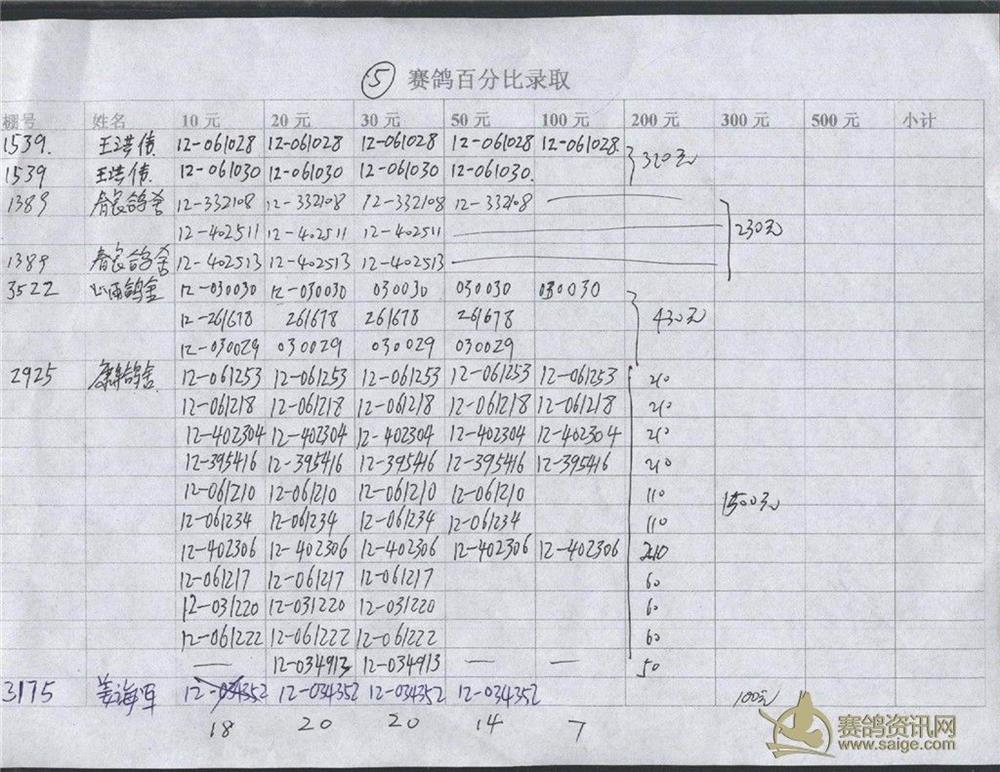 ⑤ 赛鸽百分比录取
棚号 姓名 10 元 20 元 30 元 50 元 100 元 200 元 300 元 500 元 小计
1539. 王洪伟 12-061028 12-061028 12-061028 12-061028 12-061028 320元
1539 王洪伟 12-061030 12-061030 12-061030 12-061030.
1389 鸽舍 12-332108 12-332108 12-332108 12-332108
12-402511 12-402511 12-402511 230元
1389 鸽舍 12-402513 12-402513 12-402513
3522 鸽舍 12-030030 12-030030 030030 030030 030030
12-261678 261678 261678 261678 430元
12-030029 030029 030029 030029
2925 鸽舍 12-061253 12-061253 12-061253 12-061253 12-061253 210
12-061218 12-061218 12-061218 12-061218 12-061218 210
12-402304 12-402304 12-402304 12-402304 12-402304 210
12-395416 12-395416 12-395416 12-395416 12-395416 210
12-061210 12-061210 12-061210 12-061210 110 1500元
12-061234 12-061234 12-061234 12-061234 110
12-402306 12-402306 12-402306 12-402306 12-402306 210
12-061217 12-061217 12-061217 60
12-031220 12-031220 12-031220 60
12-061222 12-061222 12-061222 60
— 12-034913 12-034913 — — 50
3175 姜海军 12-034352 12-034352 12-034352 12-034352 100元
18 20 20 14 7
赛鸽资讯网
www.saige.com